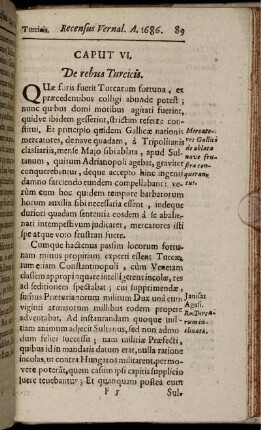 Turcicis. Recensus Vernal. A. 1686. 89
CAPUT VI.
De rebus Turcicis.
QUæ foris fuerit Turcarum fortuna, ex
præcedentibus colligi abunde potest;
nunc quibus domi motibus agitati fuerint,
quidve ibidem gesserint, strictim referre constitui.
Et principio quidem Gallicæ nationis
mercatores, de nave quadam, à Tripolitanis
classiariis, mense Majo sibi ablata, apud Sultanum,
quitum Adrianopoli agebat, graviter
conquerebantur, deque accepto hinc ingenti
damno sarciendo eundem compellabant: verùm
cum hoc quidem tempore barbarorum
horum auxilia sibi necessaria essent, indeque
duriori quadam sententia eosdem à se abalienari
intempestivum judicaret, mercatores isti
spe atque voto frustrati fuere.
Mercatores
Gallici
de ablata
nave frustra
conqueruntur.
Cumque hactenus passim locorum fortunam
minus propitiam experti essent Turcæ,
tum etiam Constantinopoli, cùm Venetam
classem appropinquare intelligerent incolæ, res
ad seditionem spectabat; cui supprimendæ,
sursius Prætorianorum militum Dux unà cum
viginti armatorum millibus eodem propere
adventabat. Ad instaurandam quoque militiam
animum adjecit Sultanus, sed non admodum
felici successu; nam militiæ Præfecti,
quibus id in mandatis datum erat, nulla ratione
incolas, ut contra Hungaros militarent, permovere
poterãt, quem casum ipsi capitis supplicio
luere tenebantur; Et quanquam postea eum
F 5 Sul-